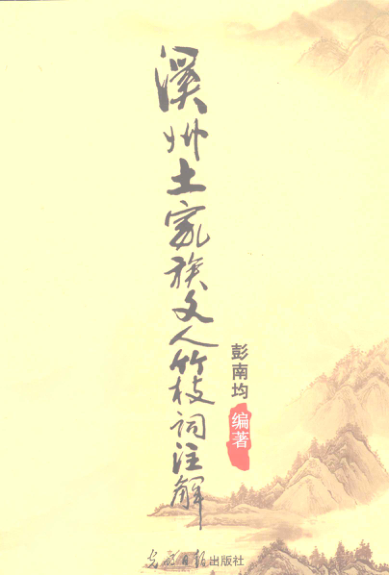 溪州土家族文人竹枝词注解
彭南均
编著
光明日报出版社